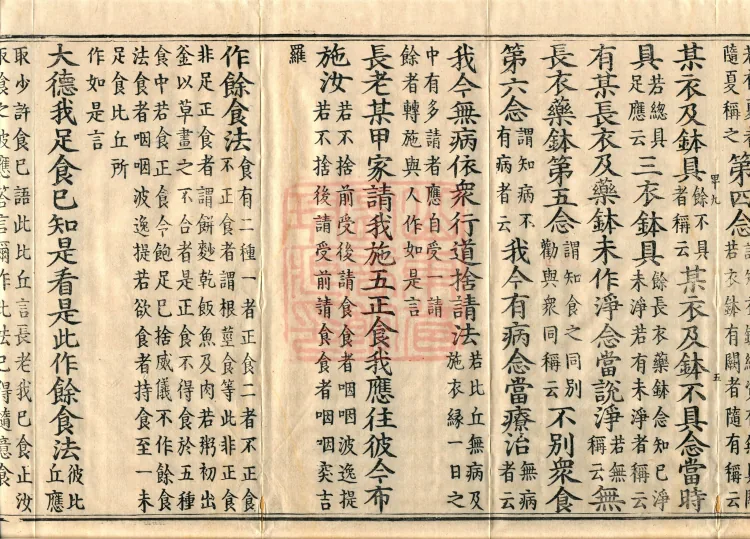 隨夏稱之第四念若衣鉢有闕者隨有稱云
某衣及鉢具餘不具者稱云某衣及鉢不具念當時
甲九 五
具若總具足應云三衣鉢具餘長衣藥鉢念知已淨未淨若有未淨者稱云
有某長衣及藥鉢未作淨念當說淨若無稱云無
長衣藥鉢第五念謂知食之同別勸與衆同稱云不別衆食
第六念謂知病不有病者云我今有病念當療治無病者云
我今無病依衆行道捨請法若比丘無病及施衣緣一日之
中有多請者應自受一請
餘者轉施與人作如是言
長老某甲家請我施五正食我應往彼今布
施汝若不捨前受後請食食者咽咽波逸提若不捨後請受前請食食者咽咽突吉
羅
作餘食法食有二種一者正食二者不正食不正食者謂根莖食等此非正食
非足正食者謂餅麨乾飯魚及肉若粥初出
釜以草畫之不合者是正食不得食於五種
食中若食正食今飽足已捨威儀不作餘食
法食者咽咽波逸提若欲食者持食至一未
足食比丘所
作如是言
大德我足食已知是看是此作餘食法彼比丘應
取少許食已語此比丘言長老我已食止汝
取食之彼應答言爾作此法已得隨意食